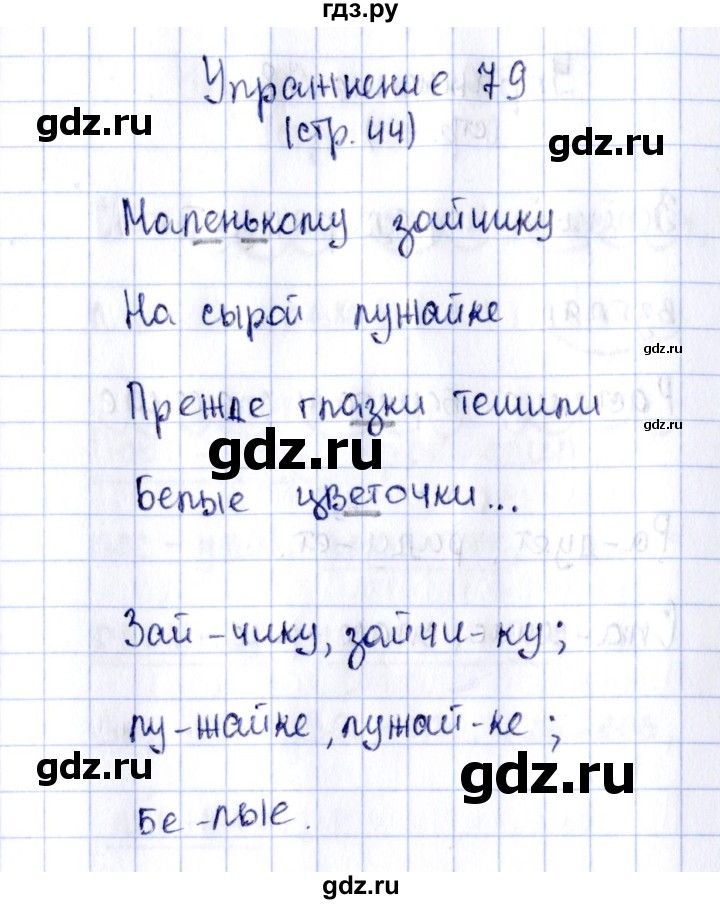 гдз.ру
Упражнение 79
gdz.ru
(стр. 44)
gdz.ru
Маленькому зайчику
На сырой лужайке
gdz.ru
Прежде глазки тешили
gdz.ru
gdz.ru
Белые цветочки...
Зай-чику, зайчи-ку;
лу-жайке, лужай-ке;
gdz.ru
gdz.ru
Бе-лые.
gdz.ru